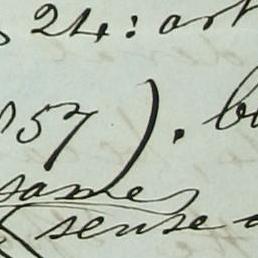 24: art
57). b
same
sense